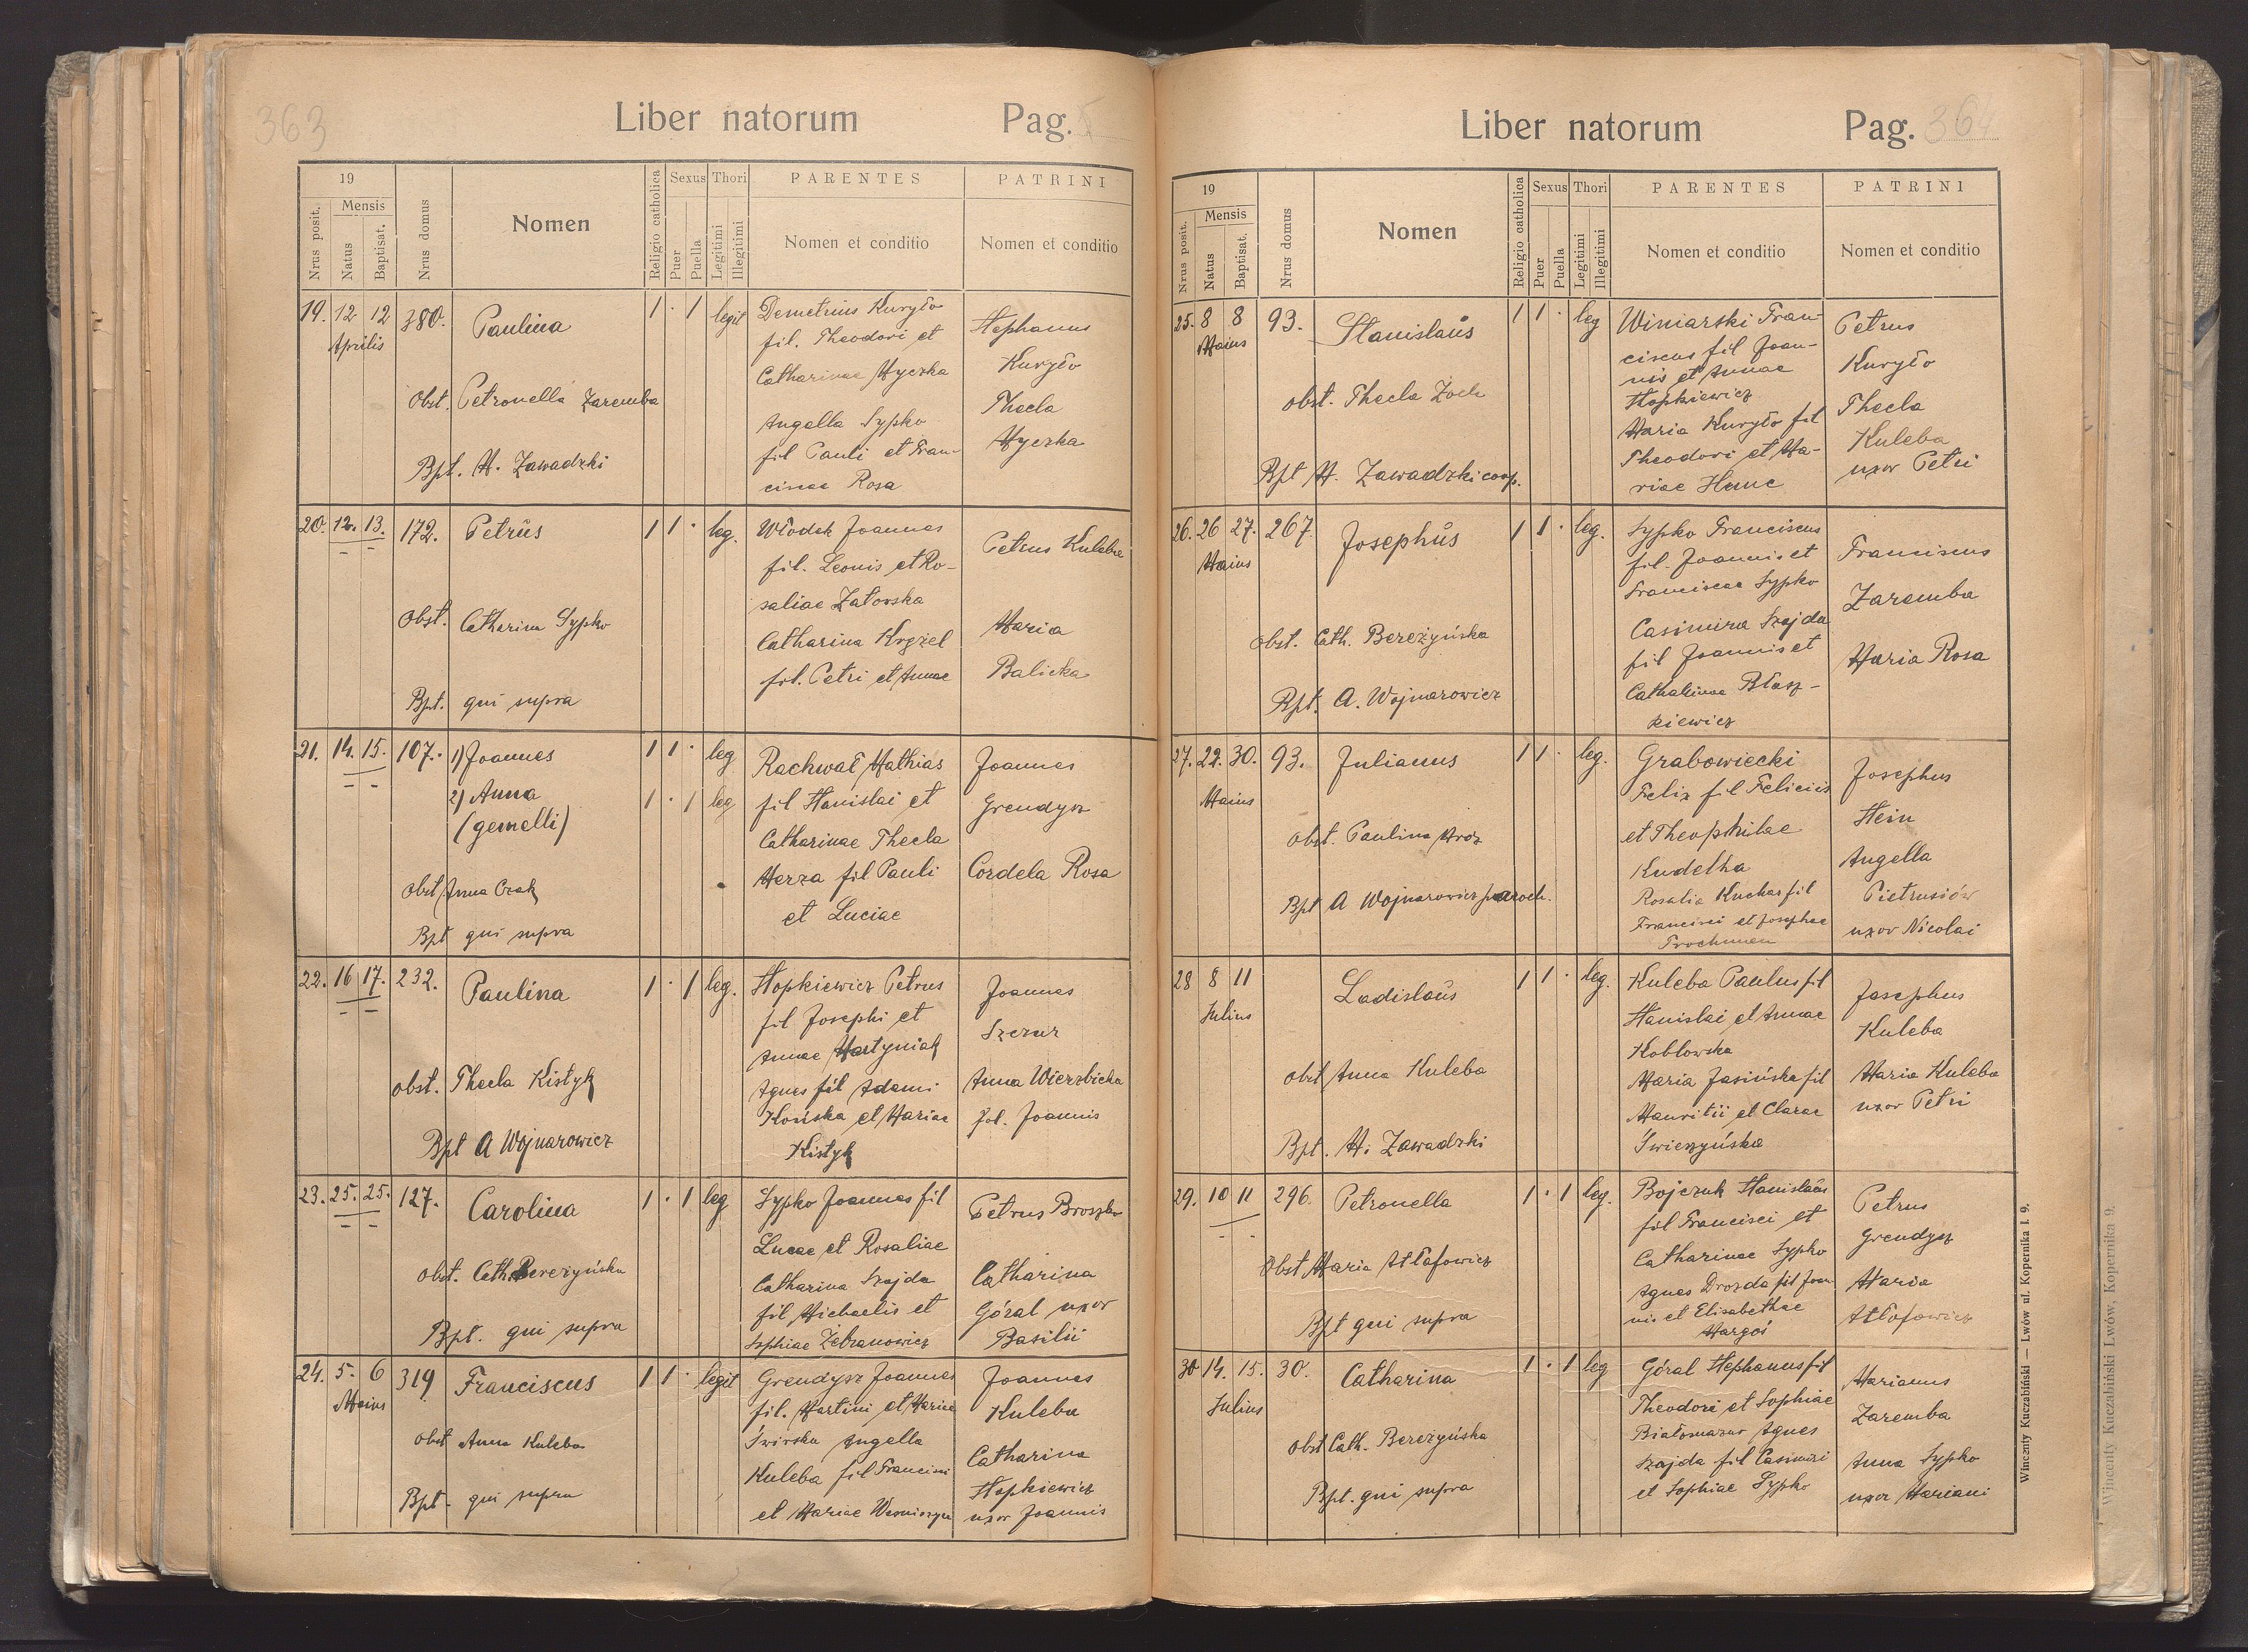 363
Liber natorum Pag.
19
Mensis
Nrus posit.
Natus
Baptisat.
Nrus domus
Nomen
Religio catholica
Sexus
Puer
Puella
Thori
Legitimi
Illegitimi
PARENTES
Nomen et conditio
PATRINI
Nomen et conditio
19. 12 12 380. Paulina 1 · 1 legit
Aprilis
Obst. Petronella Zaremba
Bpt. M. Zawadzki
Demetrius Kuryło
fil. Theodori et
Catharinae Myczka
Angella Sypko
fil Pauli et Fran-
ciscae Rosa
Stephanus
Kuryło
Thecla
Myczka
20. 12. 13. 172. Petrus 1 1 · leg.
Obst. Catharina Sypko
Bpt. qui supra
Włodek Joannes
fil. Leonis et Ro-
saliae Zatorska
Catharina
fil. Petri et Annae
Petrus Kuleba
Maria
Balicka
21. 14. 15. 107. 1) Joannes 1 1 · leg
2) Anna 1 · 1 leg
(gemelli)
Obst Anna
Bpt qui supra
Rachwał Mathias
fil Stanislai et
Catharinae Thecla
fil Pauli
et Luciae
Joannes
Grendysz
Cordela Rosa
22. 16 17. 232. Paulina 1 · 1 leg.
obst. Thecla Kistyk
Bpt A Wojnarowicz
Hopkiewicz Petrus
fil Josephi et
Annae Martyniak
Agnes fil Adami
Końska et Mariae
Kistyk
Joannes
Szczur
Anna Wierzbicka
fil. Joannis
23. 25. 25. 127. Carolina 1 · 1 leg
obst. Cath. Bereżyńska
Bpt. qui supra
Sypko Joannes fil
Lucae et Rosaliae
Catharina Szajda
fil Michaelis et
Sophiae Żebranowicz
Petrus Broszko
Catharina
Góral uxor
Basilii
24. 5. 6 319 Franciscus 1 1 · legit
Maius
obst Anna Kuleba
Bpt. qui supra
Grendysz Joannes
fil. Martini et Mariae
Świrska Angella
Kuleba fil Francisci
et Mariae
Joannes
Kuleba
Catharina
Hopkiewicz
uxor Joannis
Liber natorum Pag. 364
19
Mensis
Nrus posit.
Natus
Baptisat.
Nrus domus
Nomen
Religio catholica
Sexus
Puer
Puella
Thori
Legitimi
Illegitimi
PARENTES
Nomen et conditio
PATRINI
Nomen et conditio
25. 8 8 93. Stanislaus 1 1 · leg
Maius
obst. Thecla Zoch
Bpt M. Zawadzki coop.
Winiarski Fran-
ciscus fil Joan-
nis et Annae
Hopkiewicz
Maria Kuryło fil
Theodori et Ma-
riae
Petrus
Kuryło
Thecla
Kuleba
uxor Petri
26. 26 27. 267. Josephus 1 1 · leg.
Maius
obst. Cath. Bereżyńska
Bpt. A. Wojnarowicz
Sypko Franciscus
fil. Joannis et
Franciscae Sypko
Casimira Szajda
fil Joannis et
Catharinae Błasz-
kiewicz
Franciscus
Zaremba
Maria Rosa
27. 22. 30. 93. Julianus 1 1 · leg.
Maius
obst. Paulina Mróz
Bpt A Wojnarowicz paroch.
Grabowiecki
Felix fil Feliciis
et Theophilae
Kudelka
Rosalia Kuchar fil
Francisci et Josephae
Josephus
Hein
Angella
Pietrusiów
uxor Nicolai
28 8 11 Ladislaus 1 1 · leg.
Julius
obst Anna Kuleba
Bpt. M. Zawadzki
Kuleba Paulus fil
Stanislai et Annae
Kobłowska
Maria Jasińska fil
Mauritii et Clarae
Świeszyńska
Josephus
Kuleba
Maria Kuleba
uxor Petri
29. 10 11 296. Petronella 1 · 1 leg.
Obst Maria Attafowicz
Bpt qui supra
Bojczuk Stanislaus
fil Francisci et
Catharinae Sypko
Agnes Drozda fil Joan-
nis et Elisabethae
Margoś
Petrus
Grendysz
Maria
Attafowicz
30 14. 15. 30. Catharina 1 · 1 leg
Julius
obst Cath. Bereżyńska
Bpt. qui supra
Góral Stephanus fil
Theodori et Sophiae
Białomazur Agnes
Szajda fil Casimiri
et Sophiae Sypko
Marianus
Zaremba
Anna Sypko
uxor Mariani
Wincenty Kuczabiński — Lwów ul. Kopernika l. 9.
Wincenty Kuczabiński Lwów, Kopernika 9.